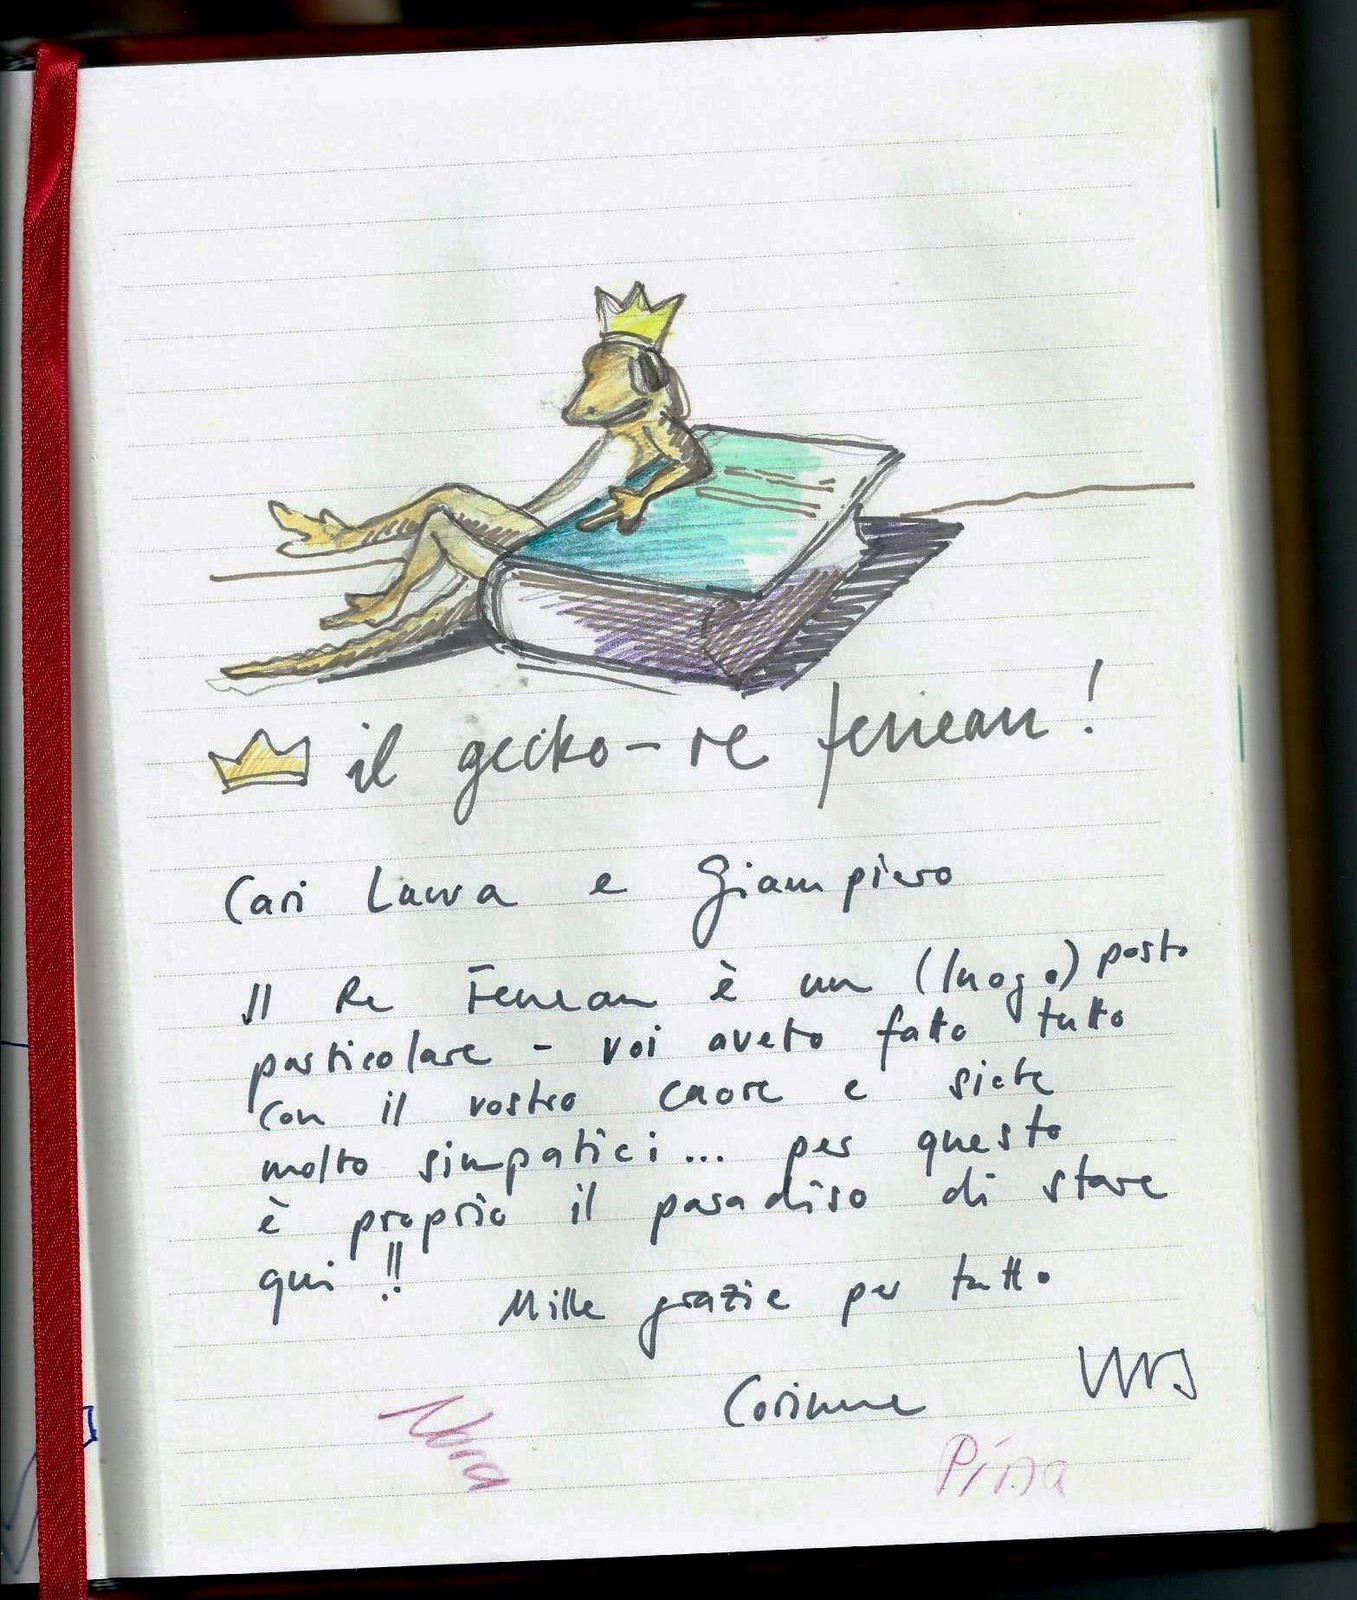 il gecko-re fenean!
Cari Laura e Giampiero
Il Re Fenean è un (luogo) posto
particolare - voi aveto fatto tutto
con il vostro cuore e siete
molto simpatici... per questo
è proprio il paradiso di stare
qui!!
Mille grazie per tutto
Corinne Urs
Nora
Pina